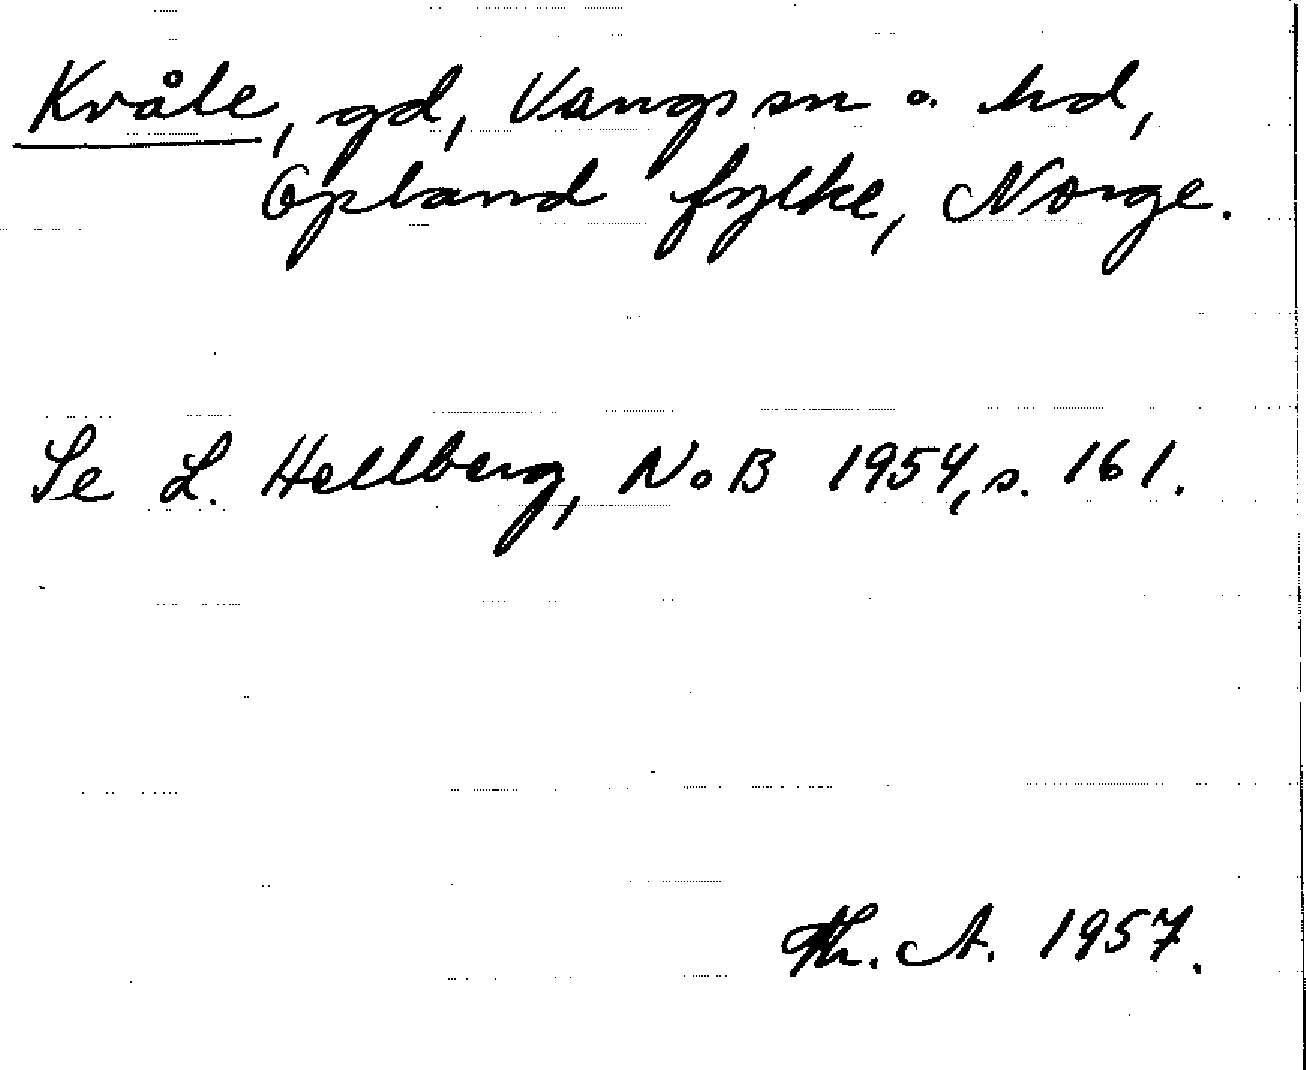 Kvåle, gd, Vangs sn o. hd,
Opland fylke, Norge.
Se L. Hellberg, NoB 1954, s. 161.
Th. A. 1957.